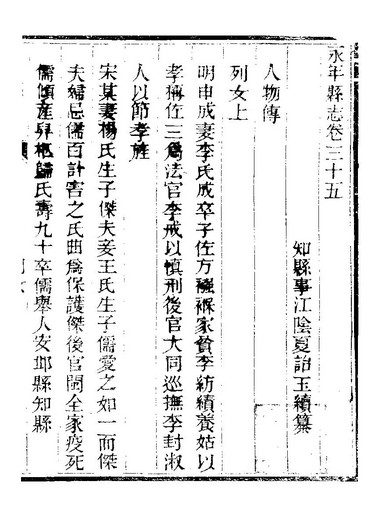 永年縣志卷三十五
知縣事江陰夏詒玉續纂
人物傳
列女上
明申成妻李氏成卒子佐方襁褓家貧李紡績養姑以
孝稱佐三爲法官李戒以慎刑後官大同巡撫李封淑
人以節孝旌
宋某妻楊氏生子傑夫妾王氏生子儒愛之如一而傑
夫婦忌儒百計害之氏曲爲保護傑後官閩全家疫死
儒傾產昇柩歸氏壽九十卒儒舉人安邱縣知縣